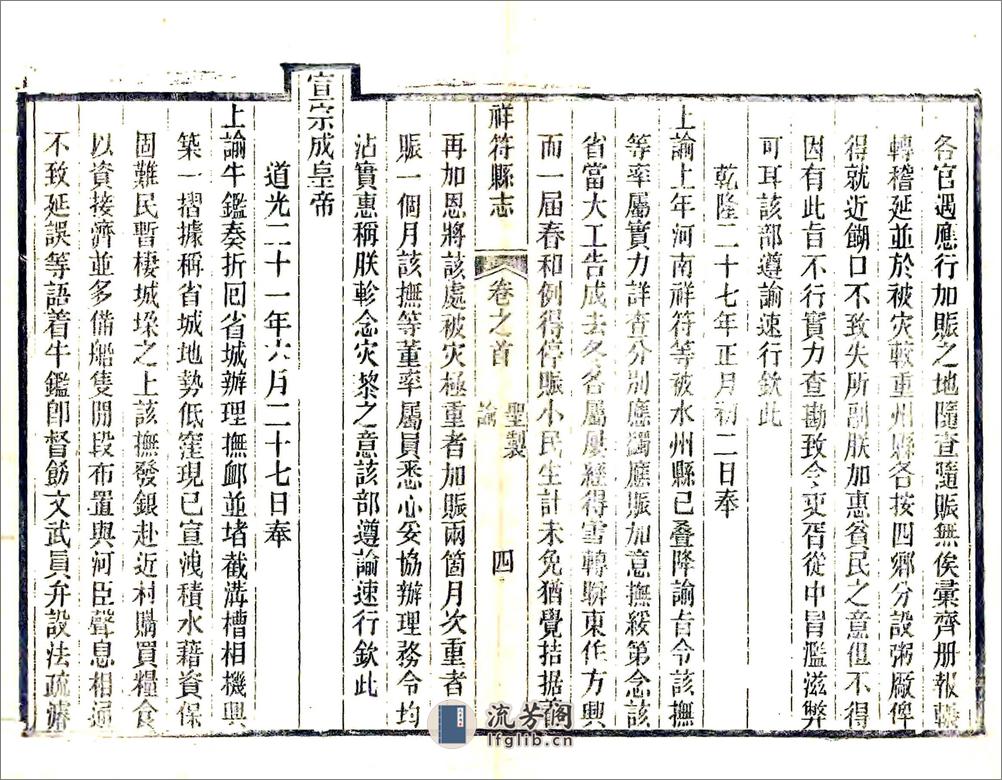 各官遇應行加賑之地隨查隨賑無俟彙齊册報輾
轉稽延並於被灾較重州縣各按四鄉分設粥厰俾
得就近餬口不致失所副朕加惠貧民之意但不得
因有此旨不行實力查勘致令吏胥從中冒濫滋弊
可耳該部遵諭速行欽此
乾隆二十七年正月初二日奉
上諭上年河南祥符等被水州縣已叠降諭旨令該撫
等率屬實力詳查分别應蠲應賑加意撫綏第念該
省當大工告成去冬各屬屢經得雪轉瞬東作方興
而一届春和例得停賑小民生計未免猶覺拮据着
祥符縣志
卷之首
聖製
諭
四
再加恩將該處被灾極重者加賑兩箇月次重者
賑一個月該撫等董率屬員悉心妥協辦理務令均
沾實惠稱朕軫念灾黎之意該部遵諭速行欽此
宣宗成皇帝
道光二十一年六月二十七日奉
上諭牛鑑奏折回省城辦理撫卹並堵截溝槽相機興
築一摺據稱省城地勢低窪現已宣洩積水藉資保
固難民暫棲城垛之上該撫發銀赴近村購買糧食
以資接濟並多備船隻閒段布置與河臣聲息相通
不致延誤等語着牛鑑卽督飭文武員弁設法疏濬
流芳阁
lfglib.cn